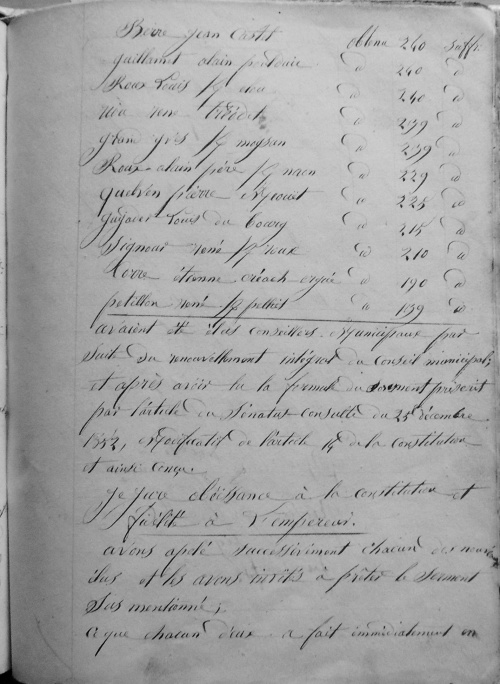 Berre jean Castel obtenu 240 suffr.
guillamet alain d 240 d
Roux Louis d 240 d
rené d 239 d
yves moysan d 239 d
Roux alain père d 229 d
Guelven pierre d 225 d
Louis du bourg d 215 d
Signour rené roux d 210 d
étienne créach d 190 d
petillon rené d 139 d
avaient été élus conseillers Municipaux par
suite du renouvellement intégral du Conseil municipal;
et après avoir lu la formule du serment prescrit
par l'article du Sénatus Consulte du 25 décembre
1852, Modificatif de l'article 14 de la Constitution
et ainsi conçu.
je jure obéissance à la constitution et
fidélité à l'empereur.
avons apelé successivement chacun des nouv.
élus et les avons invités à prêter le serment
sus mentionné;
ce que chacun d'eux a fait immédiatement en